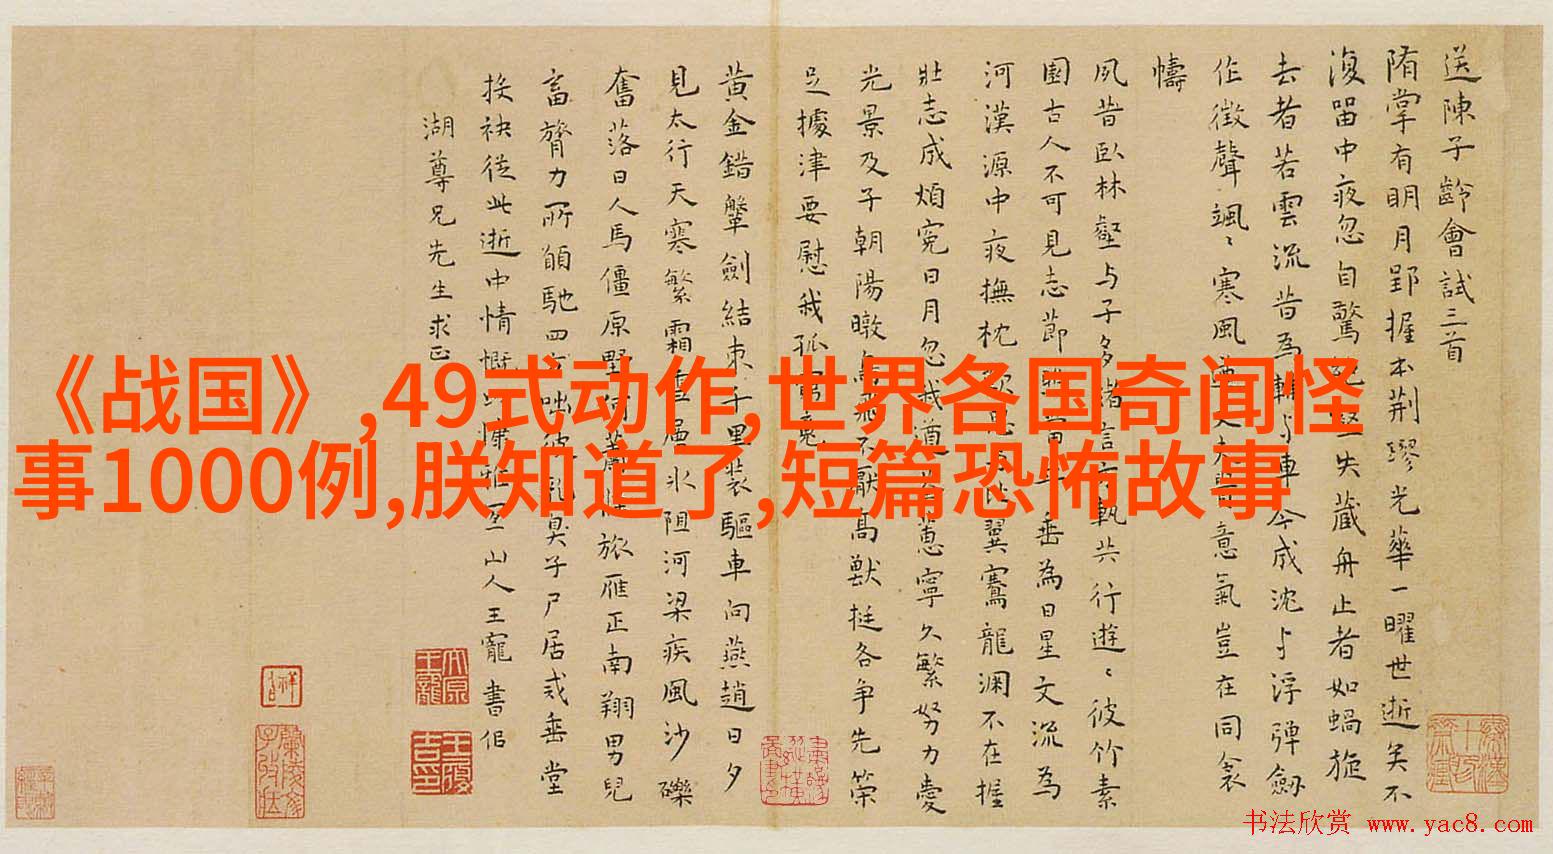 《战国》,49式动作,世界各国奇闻怪
事1000例,朕知道了,短篇恐怖故事
送陳子齡會試三首
隋掌有明月郢握本荆璆光華一曜世逝矣不
復留中夜忽自驚壑失藏舟止者如蝸旋
去者若雲流昔為輔与車今成沈与浮彈劒
作徵聲颯〻寒風意氣豈在同衾
幬
夙昔臥林壑与子多緒言方執共行遊〻彼竹素
園古人不可見志節垂為日星文流為
河漢源中夜撫枕歎翼騫龍淵不在握
壯志成煩寃日月忽我遒蕙寧久繁努力愛
光景及子朝陽暾高飛不厭高獸挺各争先策
足據津要慰我孤
黄金錯鞶劍結束千里装驅車向燕趙日夕
見太行天寒繁霜重層氷阻河梁疾風沙礫
奮落日人馬僵原野何蕭條旅雁正南翔男兒
畜膂力所願馳四方咄彼臭子尸居或垂堂
接袂從此逝中情慨山人王寵書侣
湖尊兄先生求正
书法欣赏 www.yac8.com